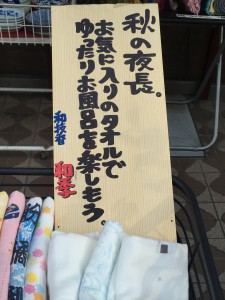 秋の夜長。
お気に入りのタオルで
ゆったりお風呂を楽しもう。